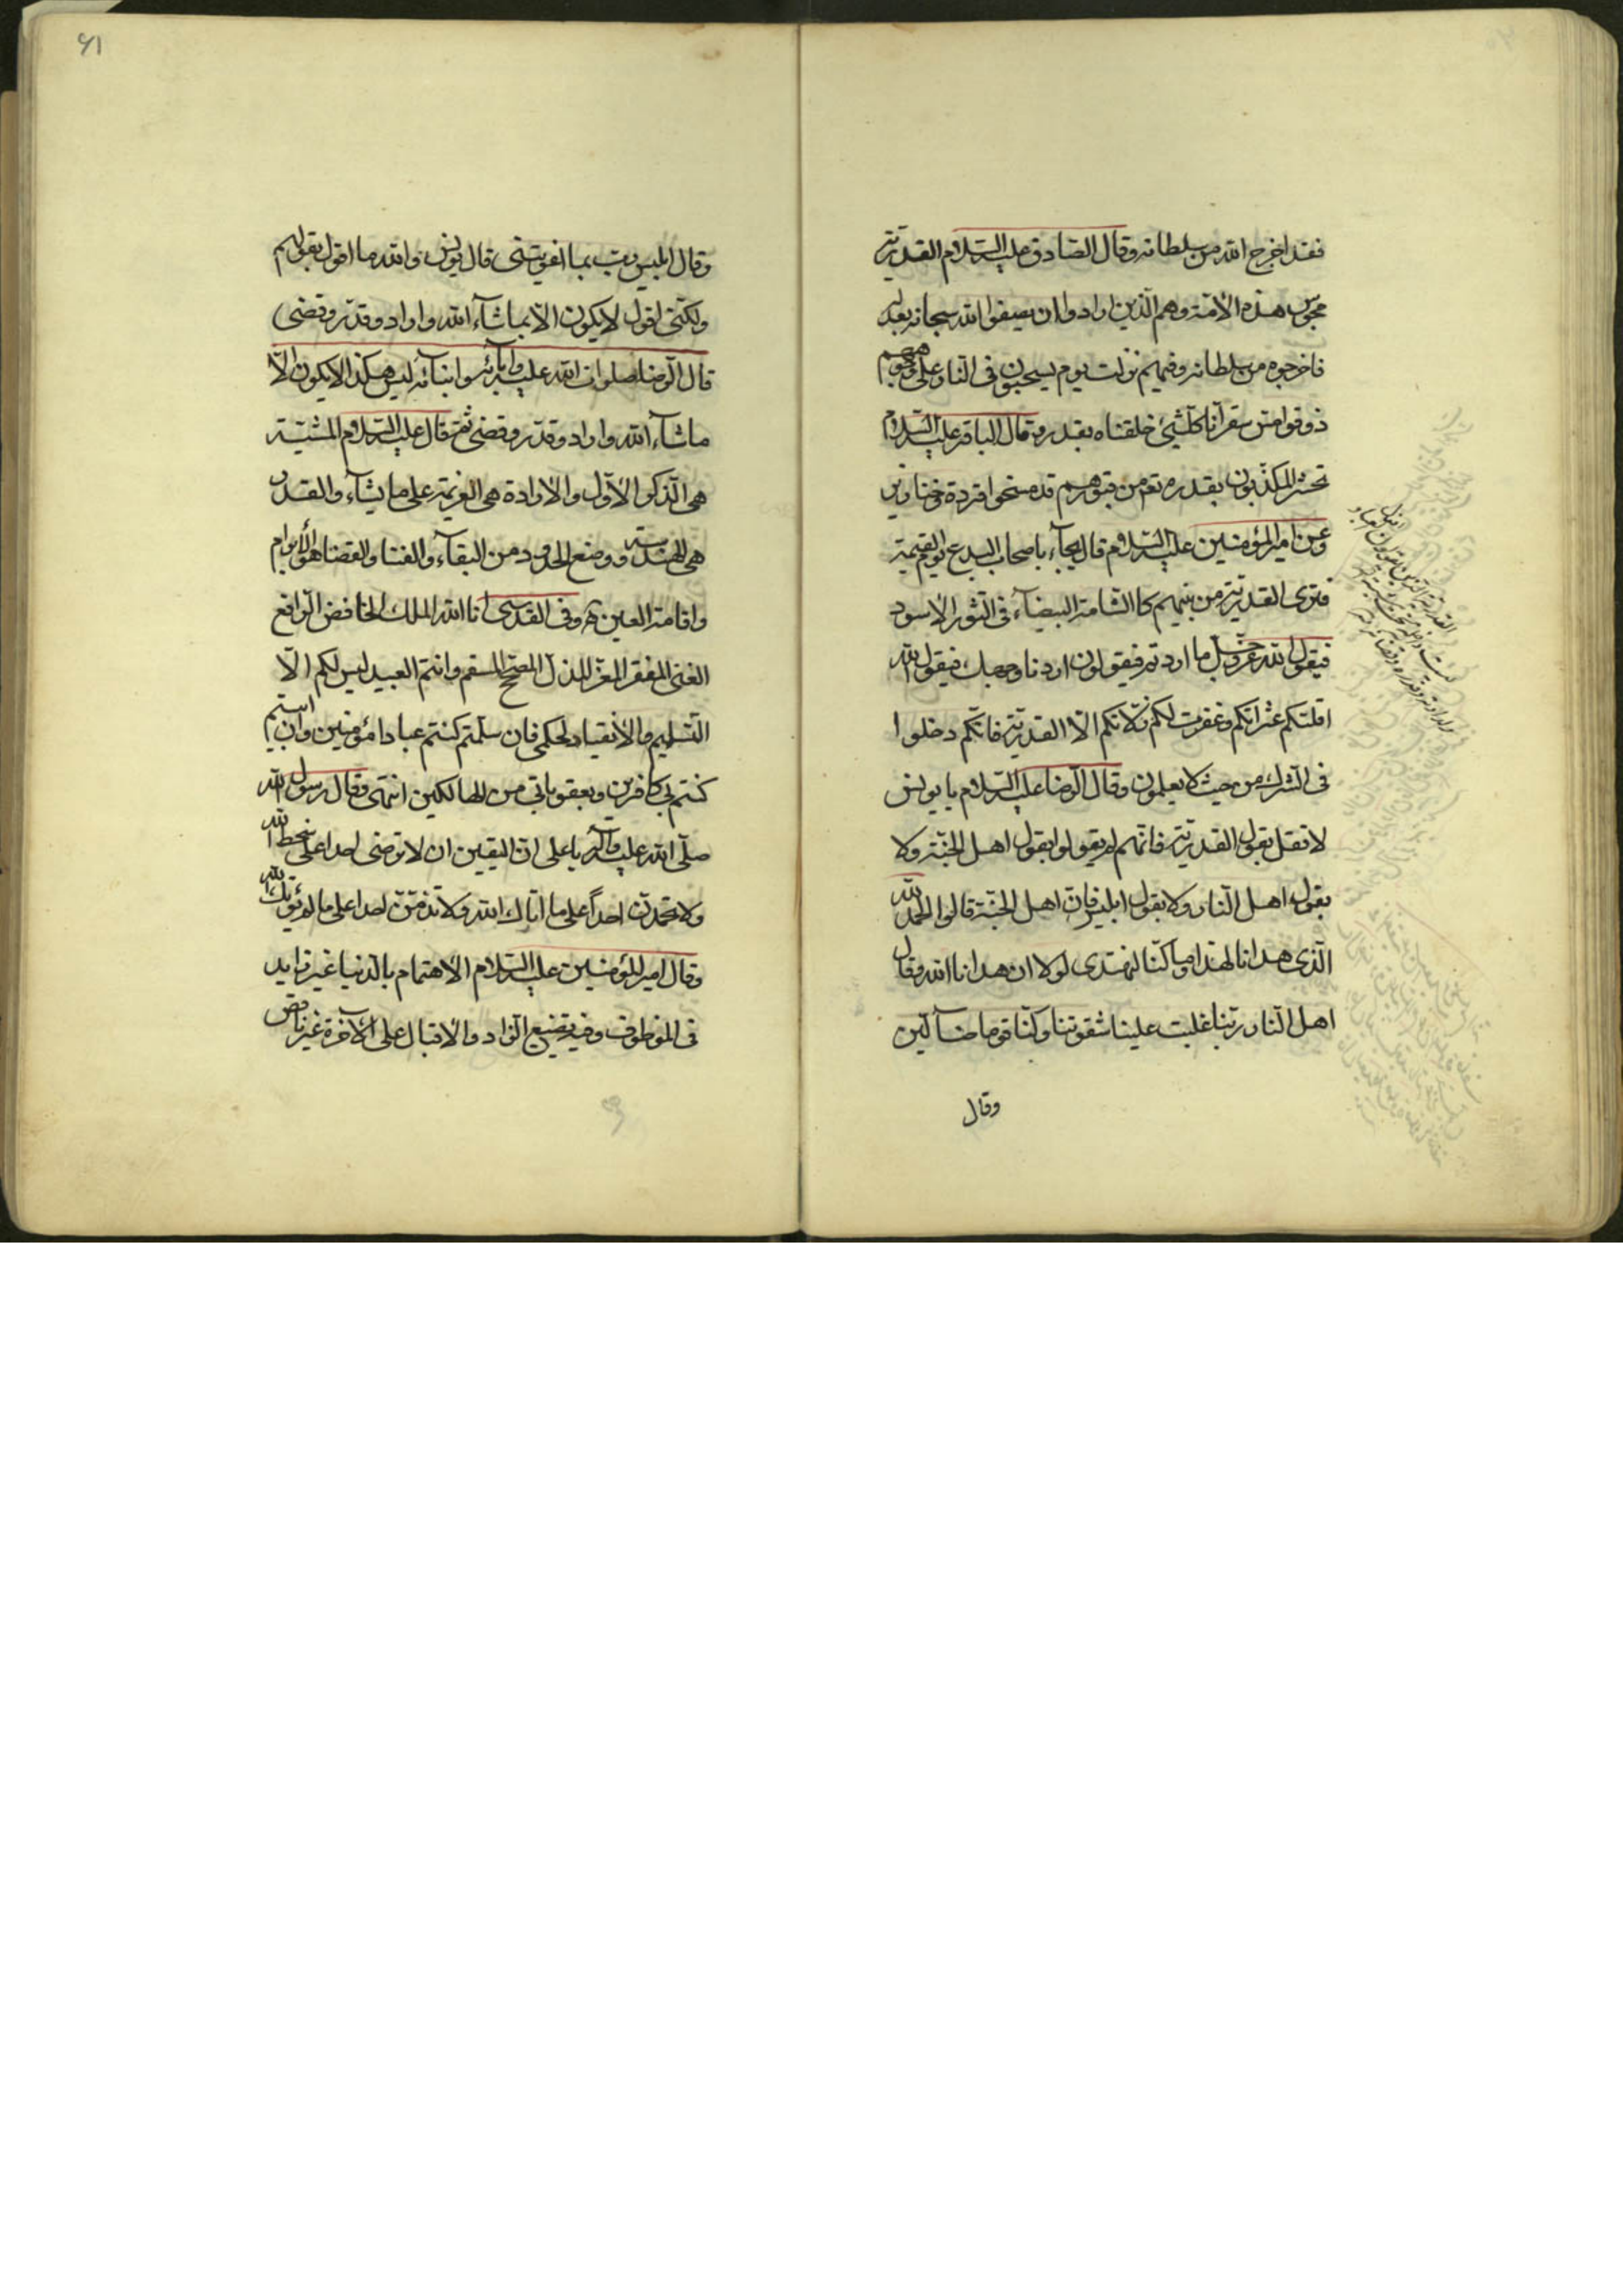 فقد اخرج الله من سلطانه وقال الصادق عليه السلام القدرية
مجوس هذه الامة وهم الذين ارادوا ان يصفوا الله سبحانه بعدله
فاخرجوه من سلطانه وفيهم نزلت يوم يسحبون فى النار على وجوههم
ذوقوا مس سقر انا كل شيئ خلقناه بقدر وقال الباقر عليه السلام
تحشر المكذبون بقدره تعم من قبورهم قد مسخوا قردة وخنازير
وعن امير المؤمنين عليه السلام قال يجآء باصحاب البدع يوم القيمة
فترى القدرية من بينهم كالشامة البيضآء فى الثور الاسود
فيقول الله عز وجل ما اردتم فيقولون اردنا وجهك فيقول الله
اقلتكم عثراتكم وغفرت لكم زلاتكم الا القدرية فانكم دخلوا
فى الشرك من حيث لا يعلمون وقال الرضا عليه السلام يا يونس
لا تقل بقول القدرية فانهم لم يقولوا بقول اهل الجنة ولا
بقول اهل النار ولا بقول ابليس فان اهل الجنة قالوا الحمد لله
الذى هدانا لهذا وما كنا لنهتدى لولا ان هدانا الله وقال
اهل النار ربنا غلبت علينا شقوتنا وكنا قوما ضآلين
وقال
۶۱
وقال ابليس رب بما اغويتنى قال يونس والله ما اقول بقولهم
ولكنى اقول لا يكون الا بما شآء الله واراد وقدر وقضى
قال الرضا صلوات الله عليه وابآئه وابنآئه ليس هكذا لا يكون الا
ما شآء الله واراد وقدر وقضى ثم قال عليه السلام المشية
هى الذكر الاول والارادة هى العزيمة على ما يشآء والقدر
هى الهندسة ووضع الحدود من البقآء والفنا والقضا هو الابرام
واقامة العين وفى القدسى انا الله الملك الخافض الرافع
الغنى المفقر المعز المذل المصح المسقم وانتم العبيد ليس لكم الا
التسليم والانقياد لحكمى فان سلمتم كنتم عبادا مؤمنين وان ابيتم
كنتم بى كافرين وبعقوباتى من الهالكين انتهى وقال رسول الله
صلى الله عليه وآله يا على ان اليقين ان لا ترضى احدا على سخط الله
ولا تحمدن احدا على ما اتاك الله ولا تذمن احدا على ما لم يؤتك الله
وقال امير المؤمنين عليه السلام الاهتمام بالدنيا غير زايد
فى الموظوف وفيه تضييع الزاد والاقبال على الآخرة غير ناقص